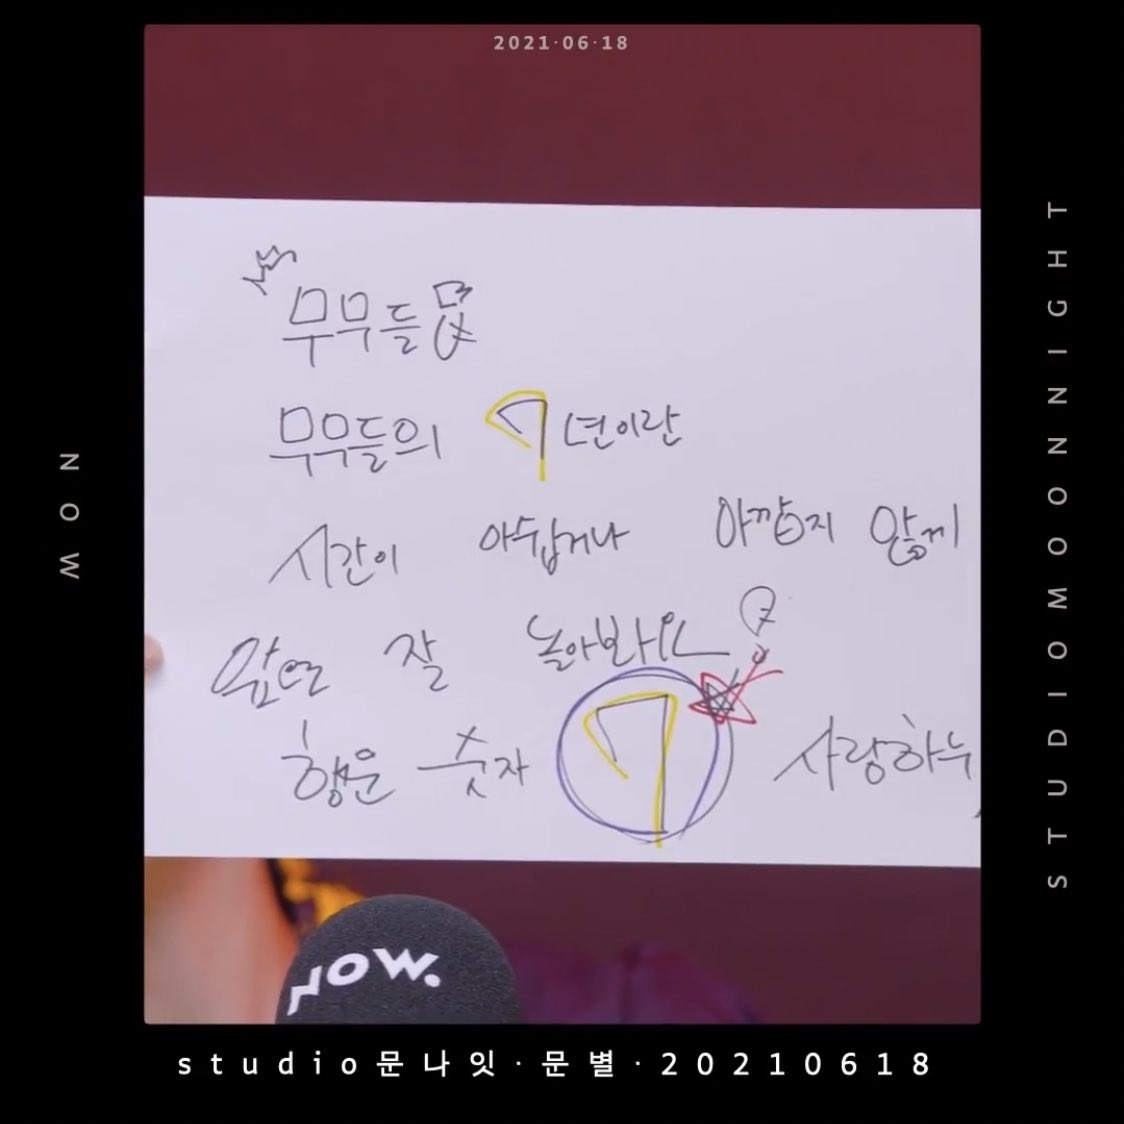 2021·06·18
무무들
무무들의 7년이란
시간이 아쉽거나 아깝지 않게
앞으로 잘 놀아봐요
행운 숫자 7 사랑하누
NOW.
studio문나잇·문별·20210618
NOW
STUDIOMOONNIGHT